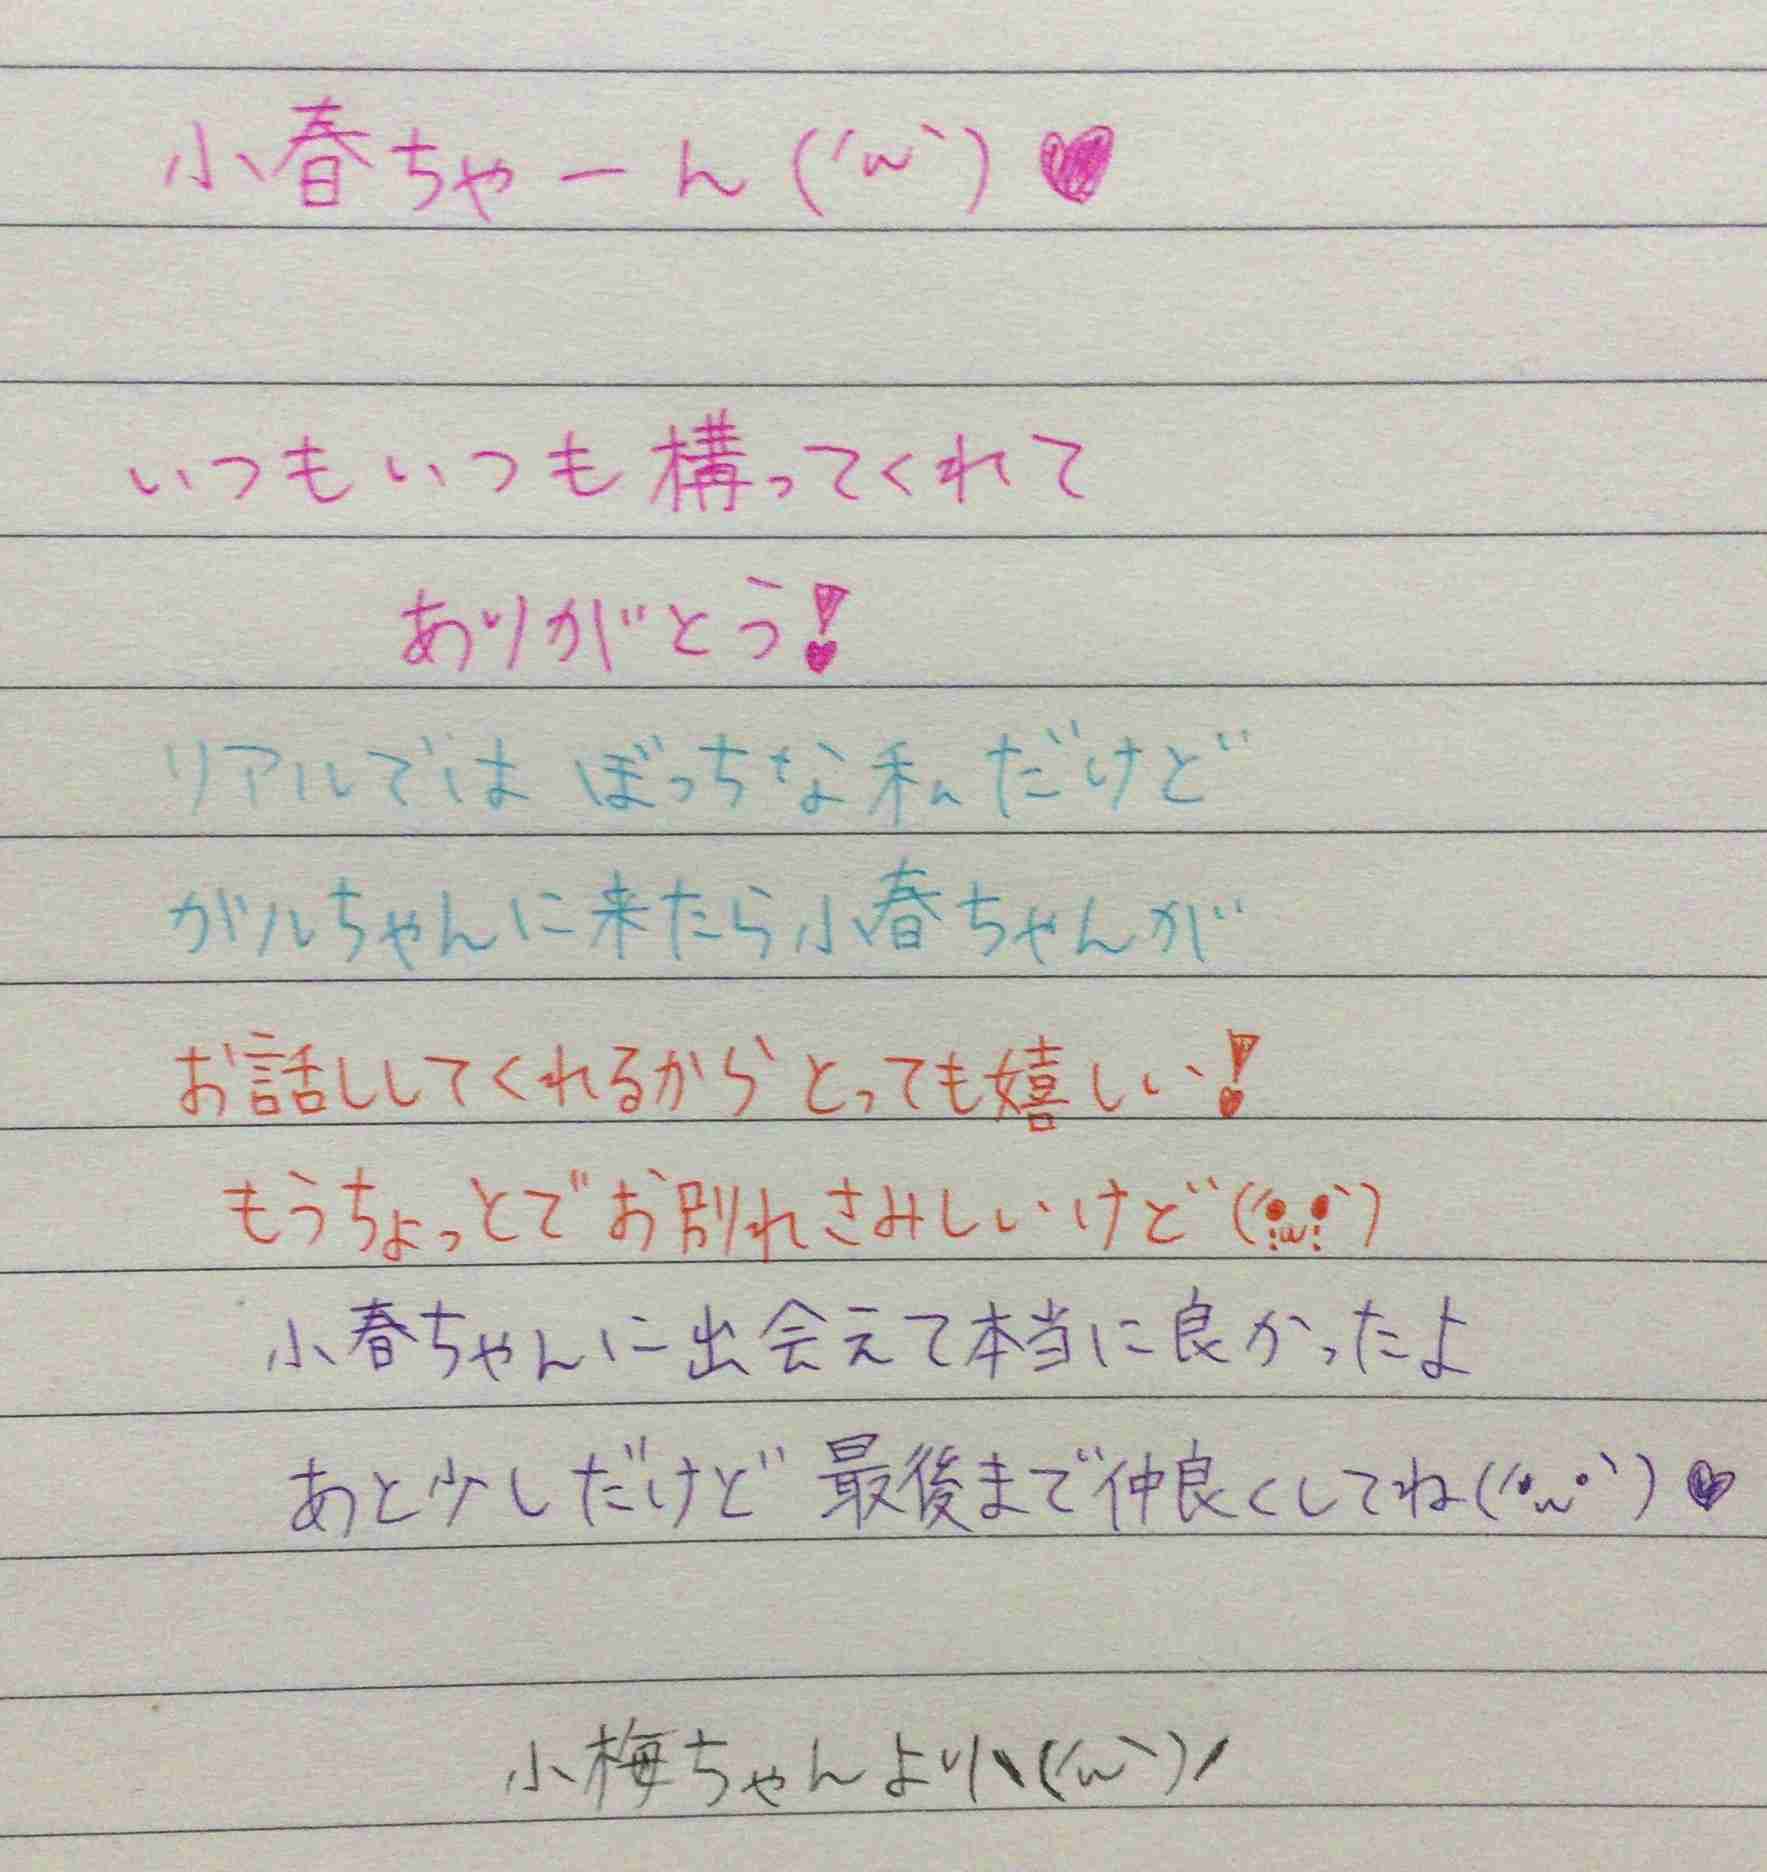 小春ちゃーん(´ω`)♥
いつもいつも構ってくれて
ありがとう!
リアルでは ぼっちな私だけど
ガルちゃんに来たら小春ちゃんが
お話ししてくれるからとっても嬉しい!
もうちょっとでお別れさみしいけど(´;ω;`)
小春ちゃんに出会えて本当に良かったよ
あと少しだけど 最後まで仲良くしてね(´•ω•`)♥
小梅ちゃんより\(´ω`)/